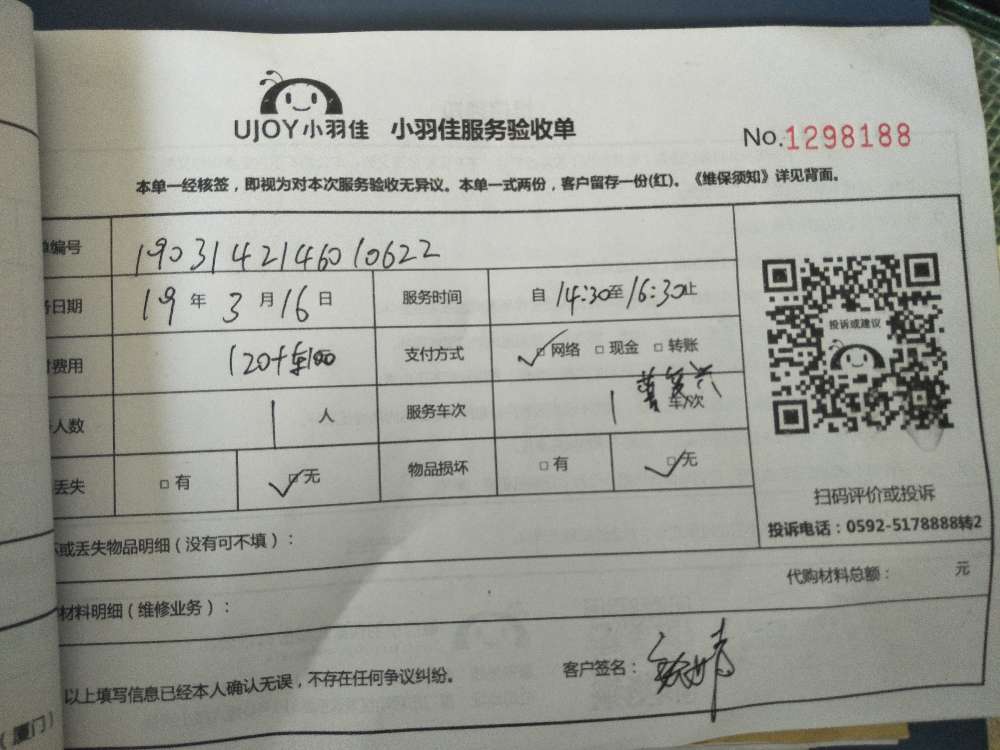 UJOY小羽佳 小羽佳服务验收单
No.1298188
本单一经核签，即视为对本次服务验收无异议。本单一式两份，客户留存一份(红)。《维保须知》详见背面。
编号 1903142146010622
日期 19 年 3 月 16 日 服务时间 自 14:30至16:30止
费用 120+车100 支付方式 □网络 □现金 □转账
人数 1 人 服务车次 1 车/次
丢失 □有 □无 物品损坏 □有 □无
投诉或建议
扫码评价或投诉
投诉电话：0592-5178888转2
或丢失物品明细（没有可不填）：
代购材料总额： 元
材料明细（维修业务）：
以上填写信息已经本人确认无误，不存在任何争议纠纷。 客户签名：
（厦门）